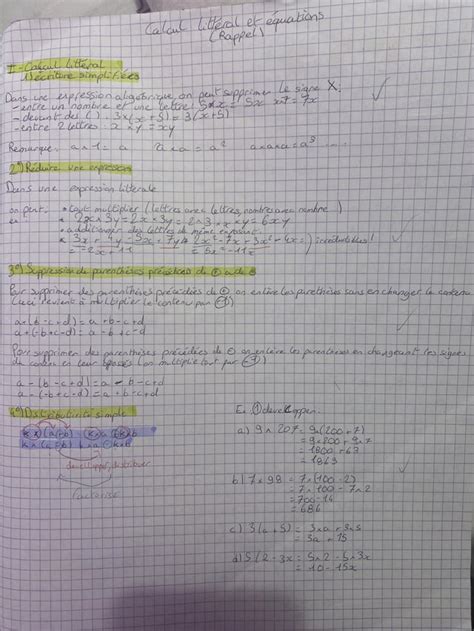 Calcul littéral et équations
(Rappel)
I - Calcul littéral
1) écriture simplifiées
Dans une expression algébrique, on peut supprimer le signe X;
- entre un nombre et une lettre: 5×x = 5x
- devant des ( ) : 3×(x+5) = 3(x+5)
- entre 2 lettres : x×y = xy
Remarque: a×1 = a a×a = a² a×a×a = a³ ....
2°) Réduire une expression
Dans une expression littérale
on peut, • tout multiplier (lettres avec lettres, nombres avec nombre)
• additionner des lettres de même exposant
3°) Suppression de parenthèses précédées de ⊕ ou de ⊖
Pour supprimer des parenthèses précédées de ⊕ on enlève les parethèses sans en changer le contenu
a+(b-c+d) = a+b-c+d
a+(-b+c-d) = a-b+c-d
Pour supprimer des parenthèses précédées de ⊖ on enlève les parenthèses en changeant les signes
a-(b-c+d) = a-b+c-d
4°) Distributivité simple
développer, distribuer
factorise
Ex ① développer.
a) 9×207 = 9×(200+7)
= 9×200+9×7
= 1800+63
= 1863
b) 7×98 = 7×(100-2)
= 7×100-7×2
= 700-14
= 686
c) 3(a+5) = 3×a+3×5
= 3a+15
d) 5(2-3x = 5×2-5×3x
= 10-15x